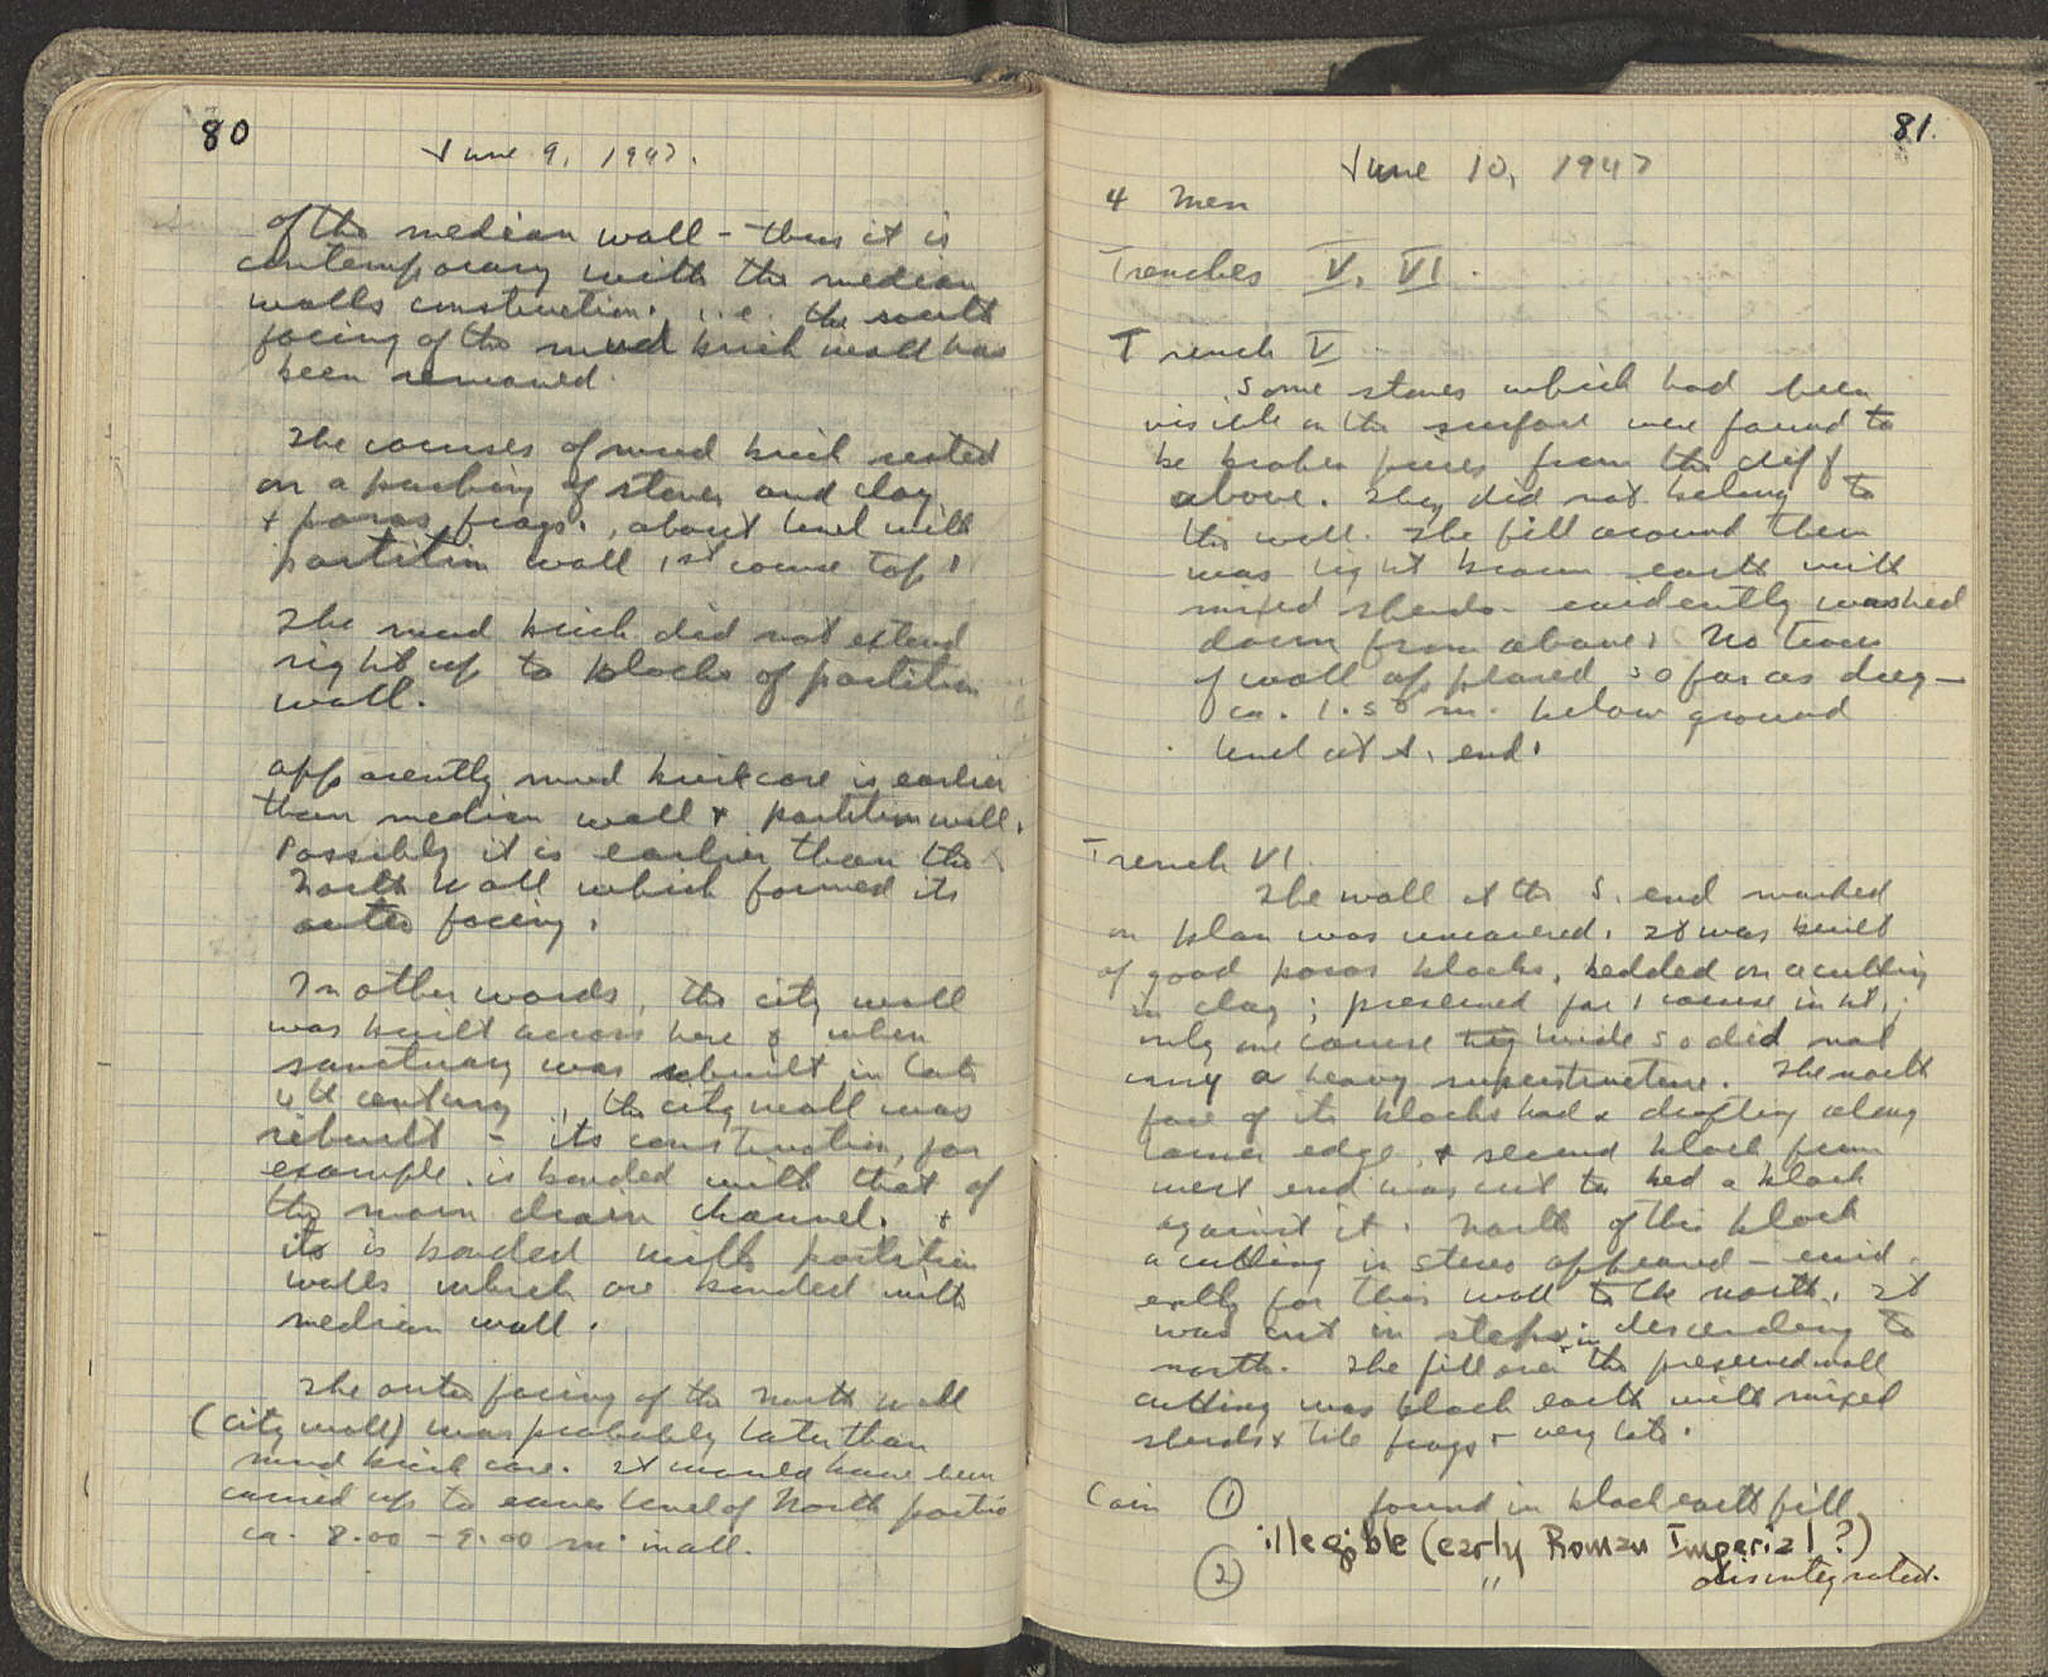 80
June 9, 1947.
of the median wall - thus it is
contemporary with the median
walls construction. i.e. the south
facing of the mud brick wall has
been removed.
The courses of mud brick rested
on a packing of stones and clay
+ poros frags., about level with
partition wall 1st course top.
The mud brick did not extend
right up to blocks of partition
wall.
Apparently mud brick core is earlier
than median wall + partition wall.
Possibly it is earlier than the
North Wall which formed its
outer facing.
In other words, the city wall
was built across here & when
sanctuary was rebuilt in late
4th century, the city wall was
rebuilt - its construction, for
example, is bonded with that of
the main drain channel. +
its is bonded with partition
walls which are bonded with
median wall.
The outer facing of the North wall
(city wall) was probably later than
mud brick core. It would have been
carried up to eaves level of North portico
ca. 8.00 - 9.00 m. in all.
81.
June 10, 1947
4 Men
Trenches V, VI.
Trench V
Some stones which had been
visible on the surface were found to
be broken pieces from the cliff
above. They did not belong to
the wall. The fill around them
was light brown earth with
mixed sherds - evidently washed
down from above. No traces
of wall appeared so far as dug -
ca. 1.50 m. below ground
level at S. end.
Trench VI.
The wall at the S. end marked
on plan was uncovered. It was built
of good poros blocks, bedded on a cutting
in clay; preserved for 1 course in ht.;
only one course wide so did not
carry a heavy superstructure. The north
face of its blocks had a drafting along
lower edge, + second block from
west end was cut to bed a block
against it. North of this block
a cutting in stereo appeared - evid-
ently for this wall to the north. It
was cut in steps in descending to
north. The fill over the preserved wall
cutting was black earth with mixed
sherds + tile frags - very late.
Coin ① found in black earth fill
illegible (early Roman Imperial?)
② " disintegrated.